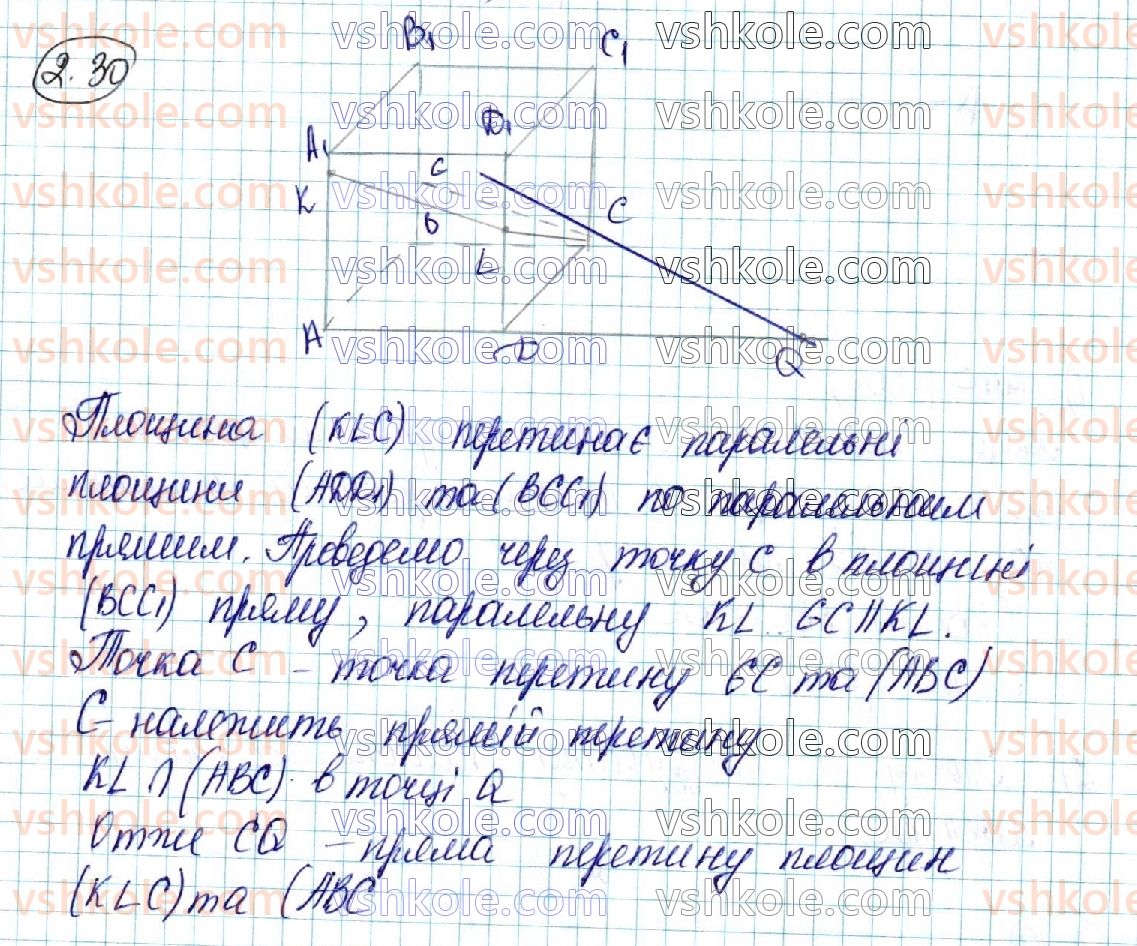 2.30
B₁
C₁
A₁
D₁
K
G
C
B
L
A
D
Q
Площина (KLC) перетинає паралельні
площини (ADD₁) та (BCC₁) по паралельним
прямим. Проведемо через точку C в площині
(BCC₁) пряму, паралельну KL. GC || KL.
Точка C – точка перетину GC та (ABC)
C – належить прямій перетину
KL ∩ (ABC) в точці Q
Отже CQ – пряма перетину площин
(KLC) та (ABC
vshkole.com